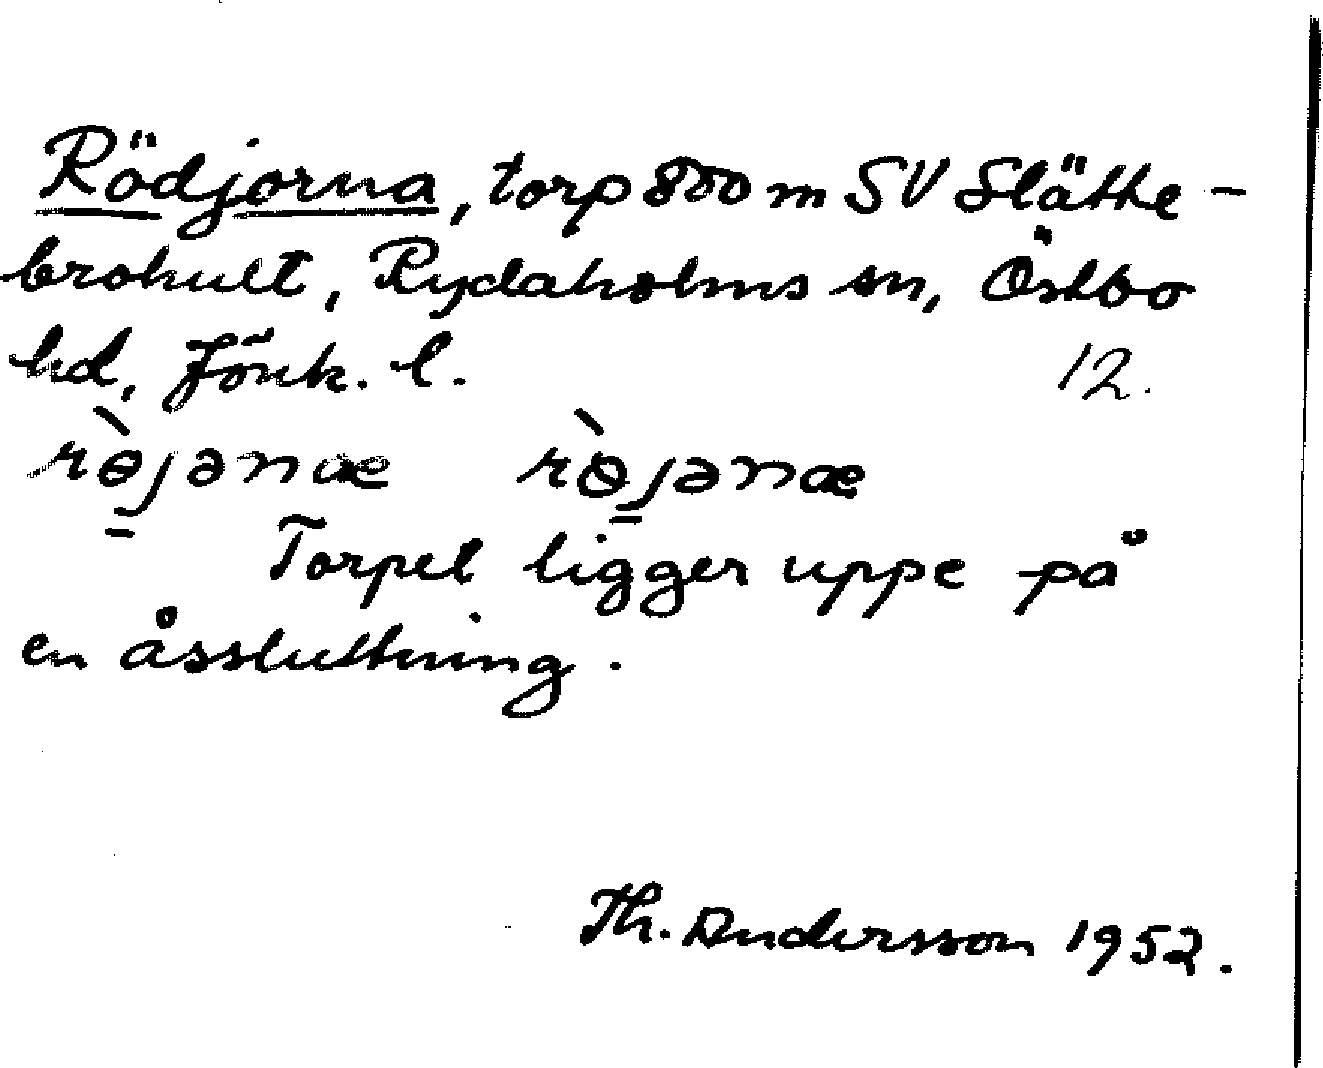 Rödjorna, torp 800 m SV Slätte-
brohult, Rydaholms sn, Östbo
hd, Jönk. l. 12.
rɵ̀jənæ rɵ̀jənæ
Torpet ligger uppe på
en åssluttning.
Th. Andersson 1952.